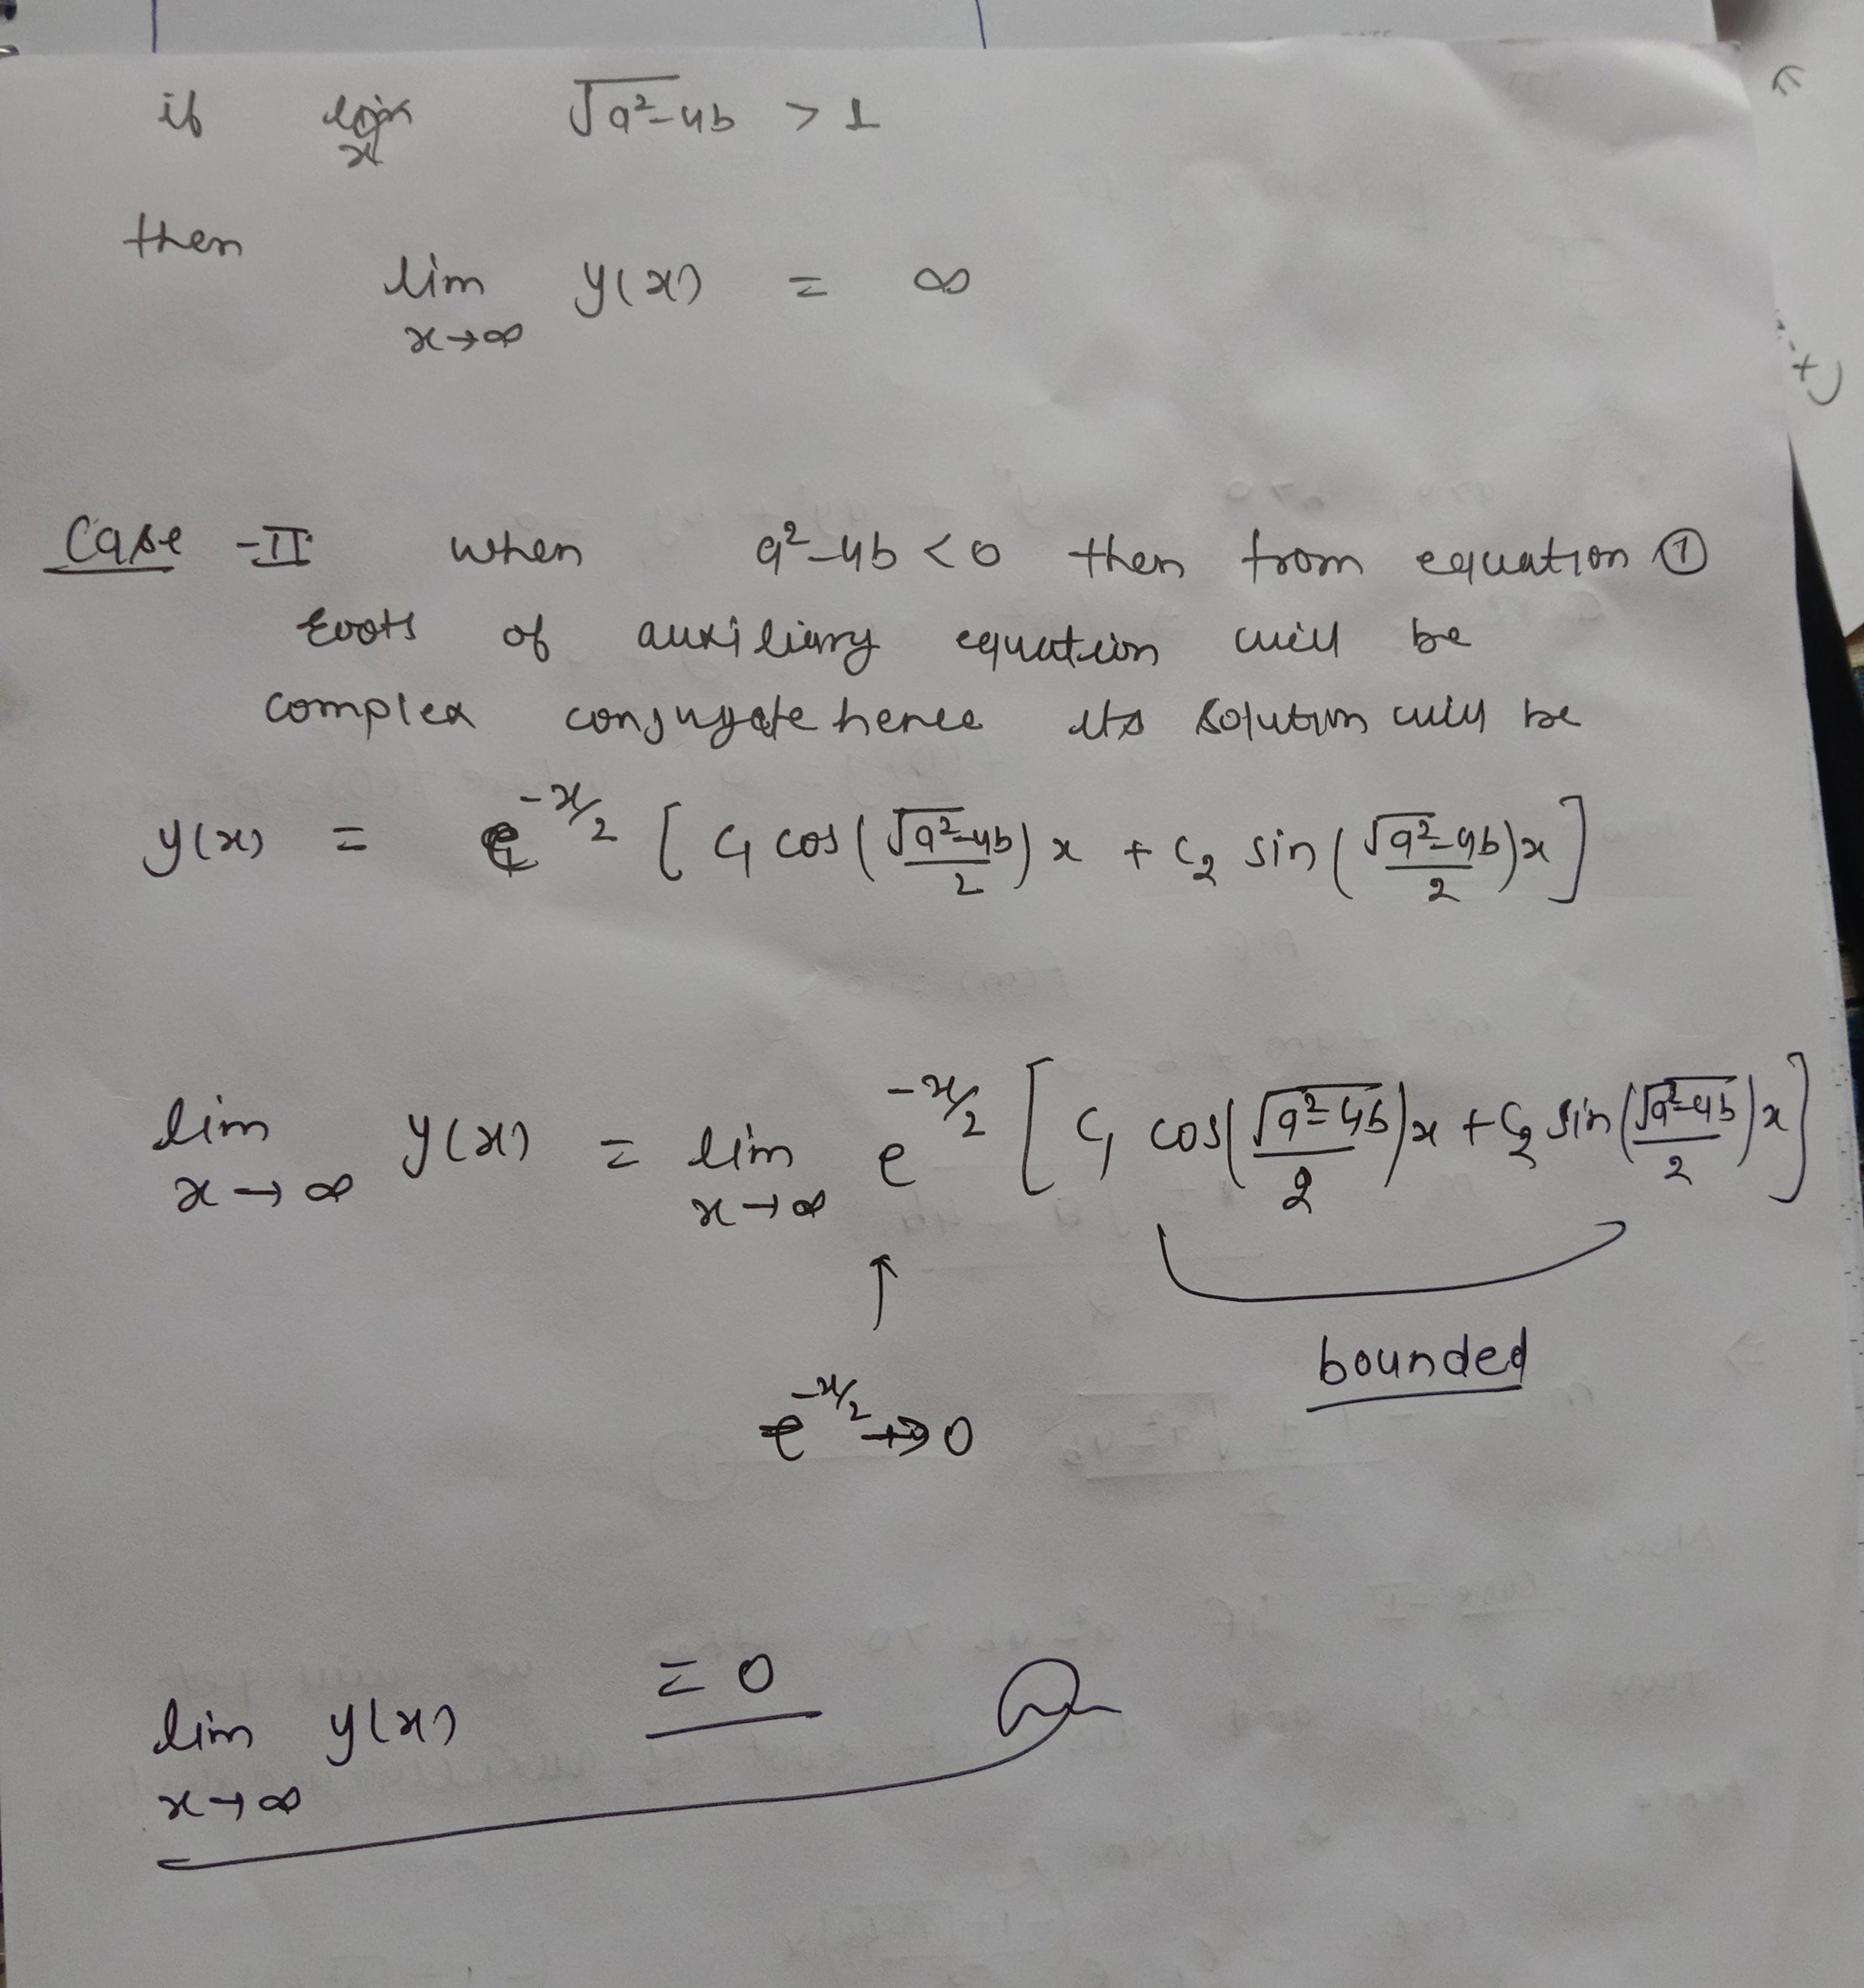 if √a²-4b > 1
then
lim y(x) = ∞
x→∞
Case -II when a²-4b < 0 then from equation ①
roots of auxiliary equation will be
complex conjugate hence its solution will be
y(x) = e^{-x/2} [ C₁ cos(√a²-4b/2) x + C₂ sin(√a²-4b/2)x ]
lim y(x) = lim e^{-x/2} [ C₁ cos(√a²-4b/2)x + C₂ sin(√a²-4b/2)x ]
x→∞ x→∞
↑
bounded
e^{-x/2} → 0
lim y(x) = 0
x→∞